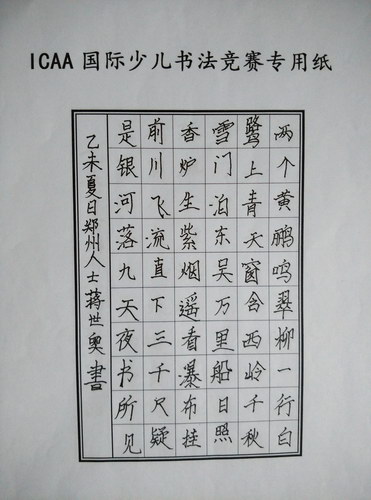 ICAA 国际少儿书法竞赛专用纸
两个黄鹂鸣翠柳一行白
鹭上青天窗含西岭千秋
雪门泊东吴万里船日照
香炉生紫烟遥看瀑布挂
前川飞流直下三千尺疑
是银河落九天夜书所见
乙未夏日郑州人士蒋世奥書